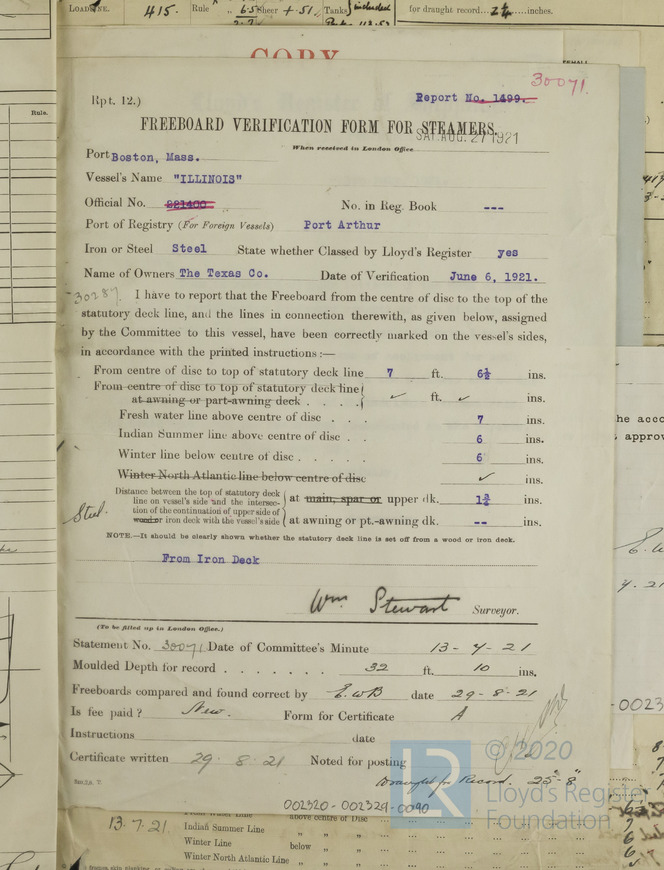 LOADLINE. 415. Rule " 6.5 Sheer + .51 Tanks included for draught record... 2¼ ...inches.
COPY
30071.
Rpt. 12.) Report No. 1499.
FREEBOARD VERIFICATION FORM FOR STEAMERS.
SAT. AUG. 27 1921
When received in London Office
Port Boston, Mass.
Vessel's Name "ILLINOIS"
Official No. 221400 No. in Reg. Book ---
Port of Registry (For Foreign Vessels) Port Arthur
Iron or Steel Steel State whether Classed by Lloyd's Register yes
Name of Owners The Texas Co. Date of Verification June 6, 1921.
30287. I have to report that the Freeboard from the centre of disc to the top of the
statutory deck line, and the lines in connection therewith, as given below, assigned
by the Committee to this vessel, have been correctly marked on the vessel's sides,
in accordance with the printed instructions :—
From centre of disc to top of statutory deck line 7 ft. 6½ ins.
From centre of disc to top of statutory deck line
at awning or part-awning deck . . . . ✓ ft. ✓ ins.
Fresh water line above centre of disc . . . 7 ins.
Indian Summer line above centre of disc . . 6 ins.
Winter line below centre of disc . . . . . 6 ins.
Winter North Atlantic line below centre of disc ✓ ins.
Distance between the top of statutory deck
line on vessel's side and the intersec-
tion of the continuation of upper side of
wood or iron deck with the vessel's side
at main, spar or upper dk. 1¾ ins.
Steel.
at awning or pt.-awning dk. -- ins.
NOTE.—It should be clearly shown whether the statutory deck line is set off from a wood or iron deck.
From Iron Deck
Wm Stewart Surveyor.
(To be filled up in London Office.)
Statement No. 30071 Date of Committee's Minute 13 - 7 - 21
Moulded Depth for record . . . . . . . 32 ft. 10 ins.
Freeboards compared and found correct by E.W.B date 29 - 8 - 21
Is fee paid ? New. Form for Certificate A
Instructions date
Certificate written 29 . 8 . 21 Noted for posting
Draught for Record. 25' - 8"
002320-002329-0090
© 2020
Lloyd's Register
Foundation
LR
13.7.21. Fresh Water Line above centre of Disc
Indian Summer Line " "
Winter Line below " "
Winter North Atlantic Line " "
Rule.